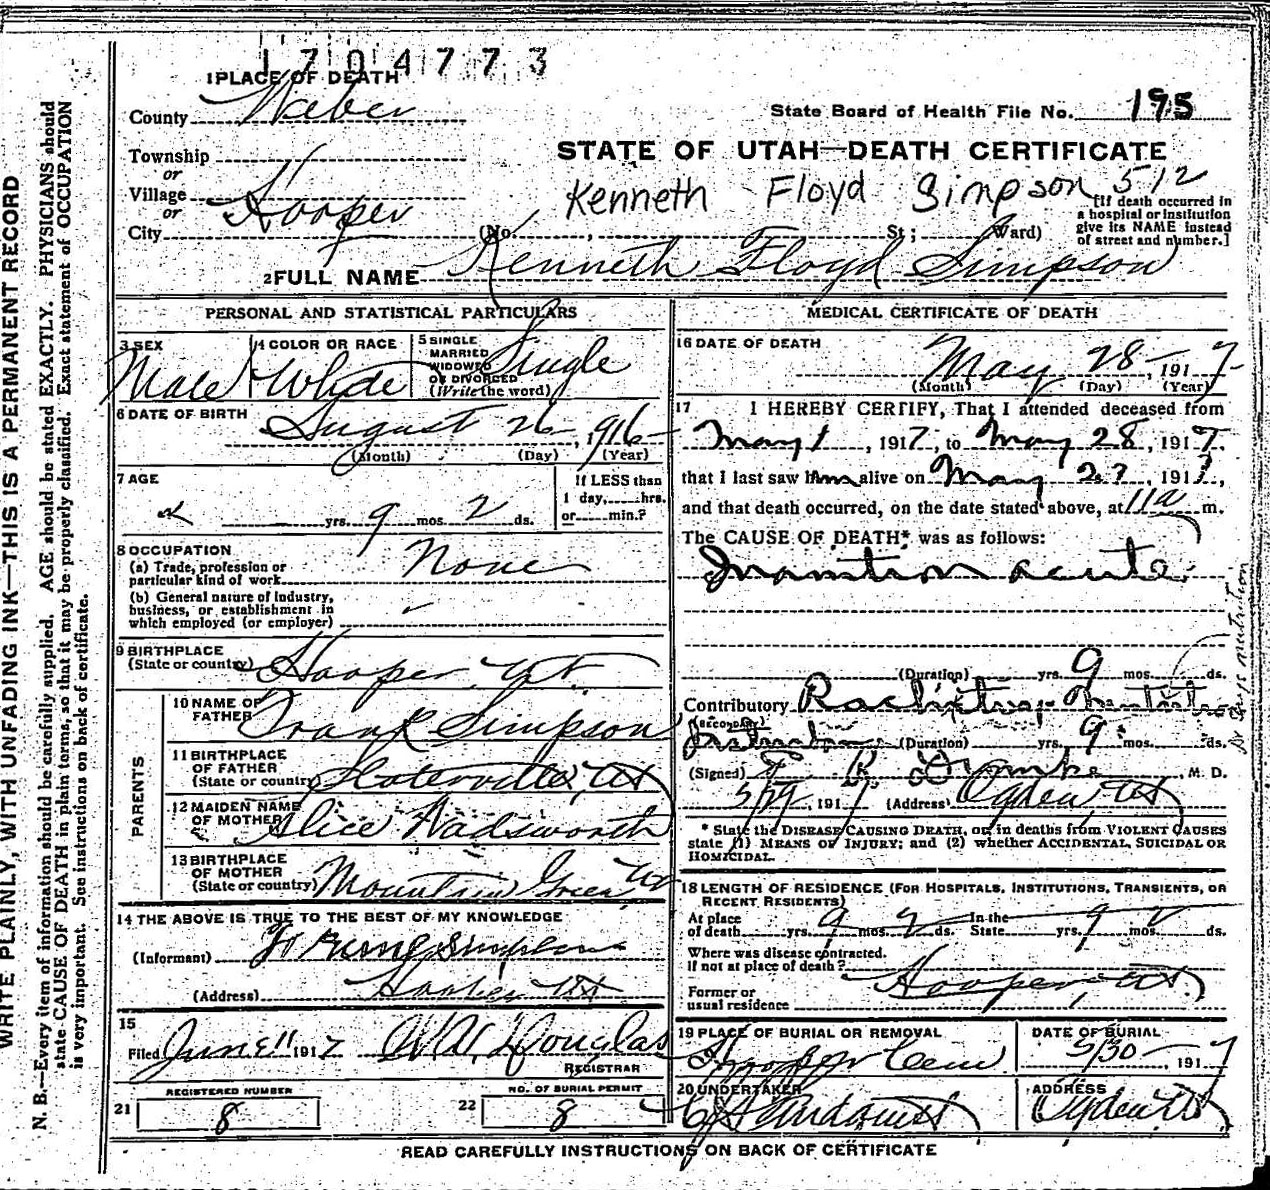 1704773
1 PLACE OF DEATH
County Weber
State Board of Health File No. 195
Township
or
Village
or
City Hooper
STATE OF UTAH—DEATH CERTIFICATE
Kenneth Floyd Simpson 512
[If death occurred in
a hospital or institution
give its NAME instead
of street and number.]
(No. , St; Ward)
2 FULL NAME Kenneth Floyd Simpson
PERSONAL AND STATISTICAL PARTICULARS
3 SEX Male
4 COLOR OR RACE White
5 SINGLE
MARRIED
WIDOWED
OR DIVORCED
(Write the word) Single
6 DATE OF BIRTH
August 26, 1916
(Month) (Day) (Year)
7 AGE
yrs. 9 mos. 2 ds.
If LESS than
1 day, hrs.
or min.?
8 OCCUPATION
(a) Trade, profession or
particular kind of work None
(b) General nature of industry,
business, or establishment in
which employed (or employer)
9 BIRTHPLACE
(State or country) Hooper Ut.
PARENTS
10 NAME OF
FATHER Frank Simpson
11 BIRTHPLACE
OF FATHER
(State or country) Slaterville, Ut
12 MAIDEN NAME
OF MOTHER Alice Wadsworth
13 BIRTHPLACE
OF MOTHER
(State or country) Mountain Green Ut
14 THE ABOVE IS TRUE TO THE BEST OF MY KNOWLEDGE
(Informant) Simpson
(Address) Hooper Ut
15
Filed June 11 1917 Douglas
REGISTRAR
REGISTERED NUMBER
21 8
NO. OF BURIAL PERMIT
22 8
MEDICAL CERTIFICATE OF DEATH
16 DATE OF DEATH
May 28—, 1917
(Month) (Day) (Year)
17 I HEREBY CERTIFY, That I attended deceased from
May 1, 1917, to May 28, 1917,
that I last saw him alive on May 27, 1917,
and that death occurred, on the date stated above, at 11 a m.
The CAUSE OF DEATH* was as follows:
Inanition acute
(Duration) yrs. 9 mos. ds.
Contributory
(Secondary)
(Duration) yrs. 9 mos. ds.
(Signed) , M. D.
5/29, 1917 (Address) Ogden Ut
* State the DISEASE CAUSING DEATH, or, in deaths from VIOLENT CAUSES
state (1) MEANS OF INJURY; and (2) whether ACCIDENTAL, SUICIDAL OR
HOMICIDAL.
18 LENGTH OF RESIDENCE (FOR HOSPITALS, INSTITUTIONS, TRANSIENTS, OR
RECENT RESIDENTS)
At place
of death yrs. 9 mos. 2 ds. In the
State yrs. 9 mos. 2 ds.
Where was disease contracted.
If not at place of death?
Former or
usual residence Hooper, Ut
19 PLACE OF BURIAL OR REMOVAL
Hooper Cem
DATE OF BURIAL
5/30—, 1917
20 UNDERTAKER
ADDRESS
Ogden Ut
READ CAREFULLY INSTRUCTIONS ON BACK OF CERTIFICATE
WRITE PLAINLY, WITH UNFADING INK—THIS IS A PERMANENT RECORD
N. B.—Every item of information should be carefully supplied. AGE should be stated EXACTLY. PHYSICIANS should
state CAUSE OF DEATH in plain terms, so that it may be properly classified. Exact statement of OCCUPATION
is very important. See instructions on back of certificate.